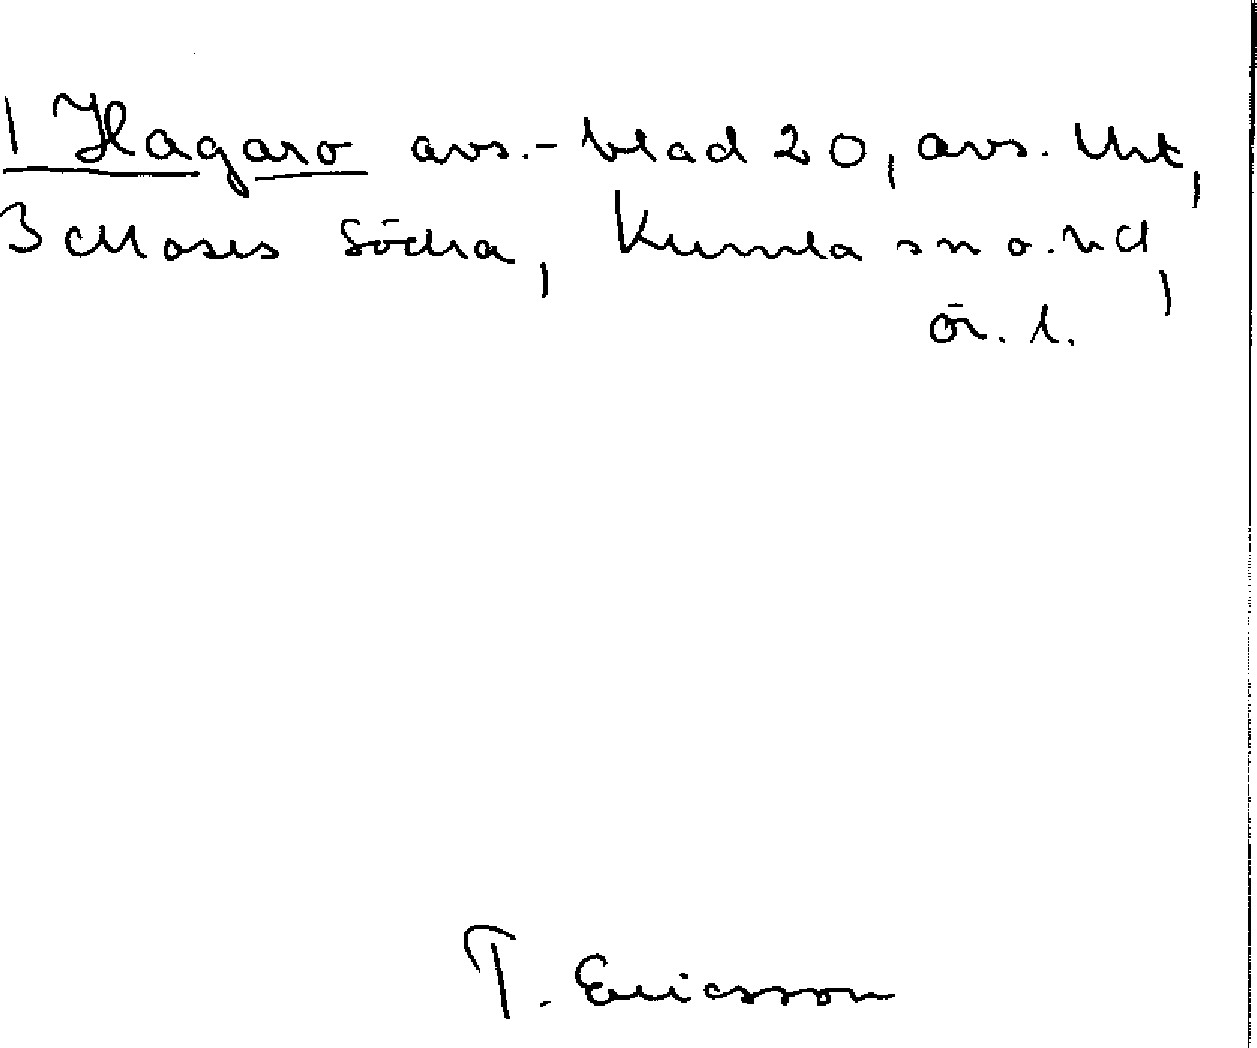 1 Hagaro avs.- blad 20, avs.
3 Moses Södra, Kumla sn o. hd,
ör. l.
T. Ericsson